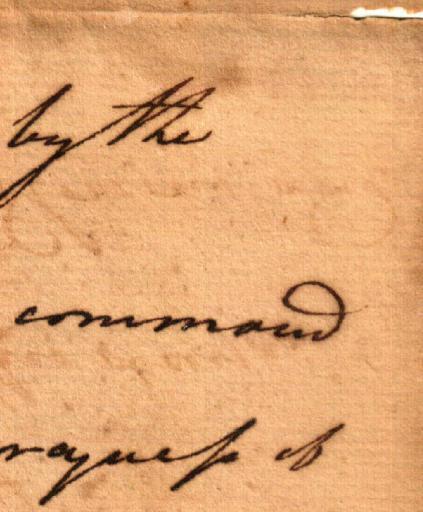 by the
command
rqueſs of